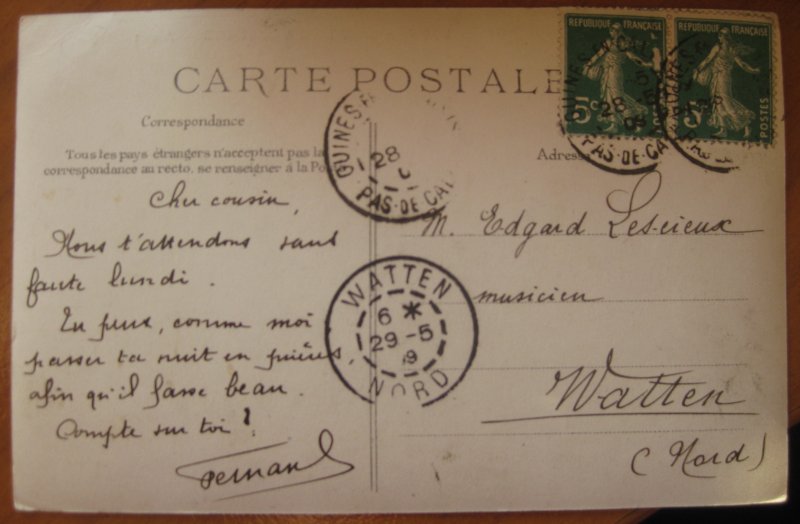 CARTE POSTALE
Correspondance
Tous les pays étrangers n'acceptent pas la
correspondance au recto, se renseigner à la Pos
Adresse
Cher cousin,
Nous t'attendons sans
faute lundi.
Tu peux, comme moi
passer ta nuit en prières,
afin qu'il fasse beau.
Compte sur toi!
Fernand
M. Edgard Lescieux
musicien
Watten
(Nord)
REPUBLIQUE FRANÇAISE
5c
POSTES
REPUBLIQUE FRANÇAISE
5c
POSTES
GUINES
28
PAS-DE-CAL
GUINES
28 5
09
PAS-DE-CA
WATTEN
6 *
29-5
9
NORD